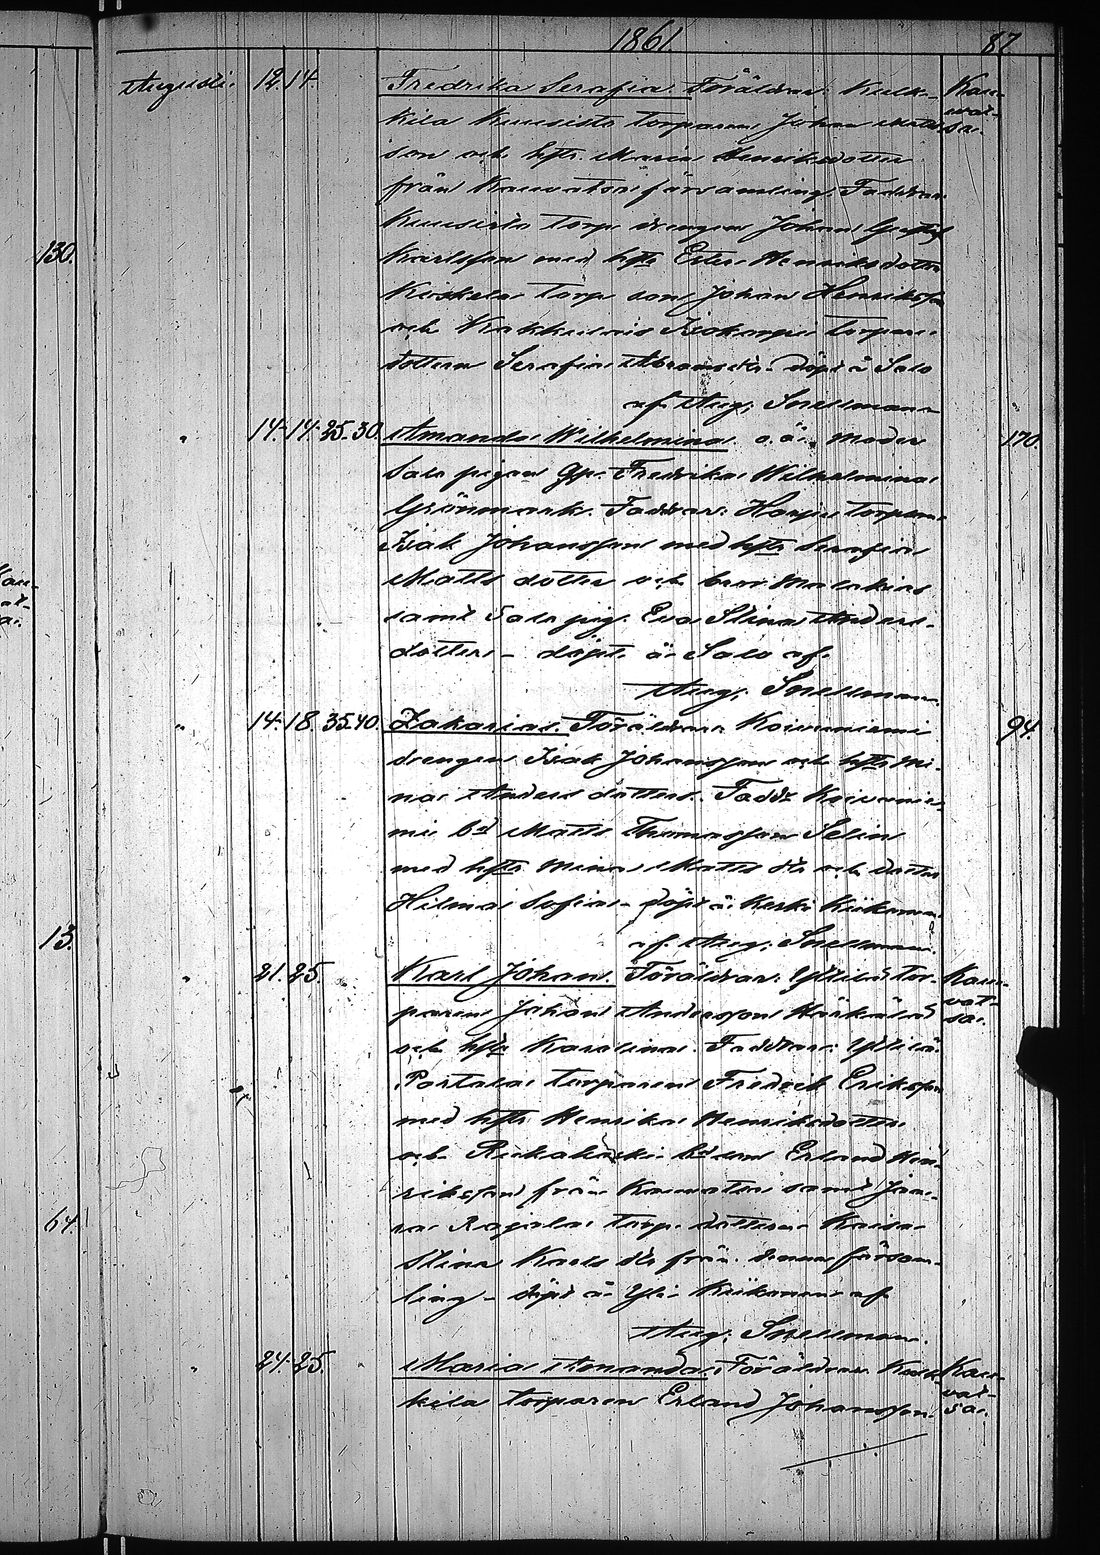 1861. 87.
Augusti. 12. 14. Fredrika Serafia. Föräldrar: Kulk- Kau-
kila Kuusisto torparen Johan Matts- vat-
son och hstr. Maria Henriksdotter sa.
från Kauvatsa församling. Faddrar:
Kuusisto torp drengen Johan Gustaf
130.
Karlsson med hstr Ester Henriksdotter
torp son Johan Henriksson
och Isokarpi torpare
dottern Serafia Abramsdr. döpt å Salo
af Aug. Snellman.
" 14. 14. 25-30. Amanda Wilhelmina o.ä. Moder 170.
Salo pigan Fredrika Wilhelmina
Grönmark. Faddrar: Harju torparen
Isak Johansson med hstr Serafia
Matts dotter och bror Malakias
samt Salo pig. Eva Stina Anders-
dotter - döpt å Salo af
Aug. Snellman.
" 14. 18. 35-40. Zakarias. Föräldrar: Koivuniemi 94.
drengen Isak Johansson och hstr Mi-
na Anders dotter. Faddr Koivunie-
mi bd Matts Thomasson Selin
med hstr Mina Matts dr och dotter
Hilma Sofia - döpt å Keski Kiikoinen
13.
af Aug. Snellman.
" 21. 25. Karl Johan. Föräldrar: Ylilä tor- Kau-
paren Johan Andersson Härkälä vat-
och hstr Karolina. Faddrar: Ylilä sa.
Portala torparen Fredrik Eriksson
med hstr Henrika Henriksdotter
och bd son Erland Hen-
riksson från Kauvatsa samt
64.
Rajala torp. dottern Kaisa
Stina Karls dr från denna försam-
ling - döpt å Yli-Kiikoinen af
Aug. Snellman.
" 24. 25. Maria Amanda. Föräldrar: Kulk- Kau-
kila torparen Erland Johansson vat-
sa.